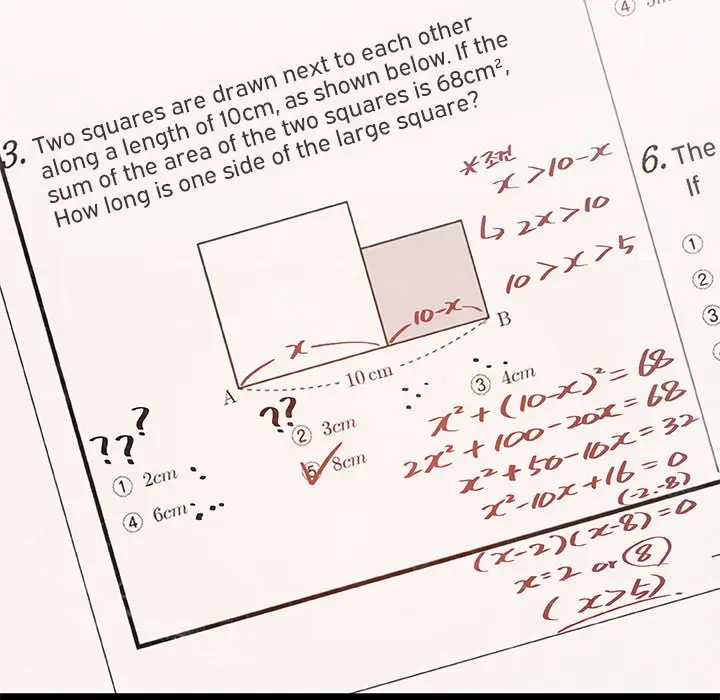 3. Two squares are drawn next to each other
along a length of 10cm, as shown below. If the
sum of the area of the two squares is 68cm²,
How long is one side of the large square?
*조건
x > 10-x
↳ 2x > 10
10 > x > 5
x
10-x
A
10 cm
B
???
① 2cm
??
② 3cm
③ 4cm
④ 6cm
⑤ 8cm
x² + (10-x)² = 68
2x² + 100 - 20x = 68
x² + 50 - 10x = 32
x² - 10x + 16 = 0
(-2, -8)
(x-2)(x-8) = 0
x = 2 or 8
(x > 5).
④
6. The
If
①
②
③